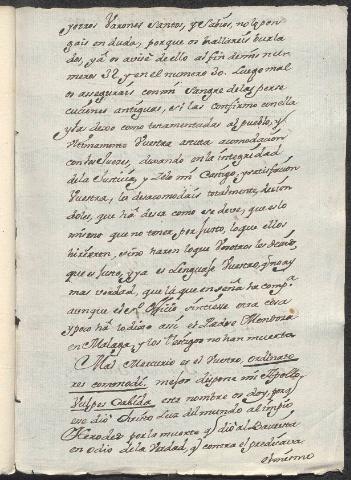 y otros Varones Santos, y Sabios, no lo pon
gais en duda, porque os hallareis burla
dos, ya os avisè de ello al fin de mis nu
meros 32 y en el numero 30. Luego mal
os assegurais con mi sangre de las perse
cuciones antiguas, si las confirmo con ella
y las dexo como testamentadas al pueblo, y
Ultimamente Vuestra acomodacion
con los Jueces, durando en la integridad
de la Justicia, y solo mi Castigo, y satisfacion
Vuestra, los desacomodais totalmente, dicien
doles, que ha de ser como se deve, que es lo
mismo que no tener por justo, lo que ellos
hizieren, sino hazen lo que Vosotros les decis,
que es justo, y ya es lenguaje Vuestro, q no ay
mas verdad, que la que enseña la comp.ª
aunque el S.to Officio sintiesse otra cosa
y pero ha lo dixo assi el Padre Mendoza
en Malaga, y los testigos no han muerto
Mas Mercurio es el Vuestro, ordinato
res commodè, mejor dispone mi Apollo,
Vulpes Dabida este nombre os doy, porq
ese diò Christo Luz del mundo al impio
Herodes por la muerte q diò al Bautista
en odio de la Verdad, q contra el predicava
el mismo